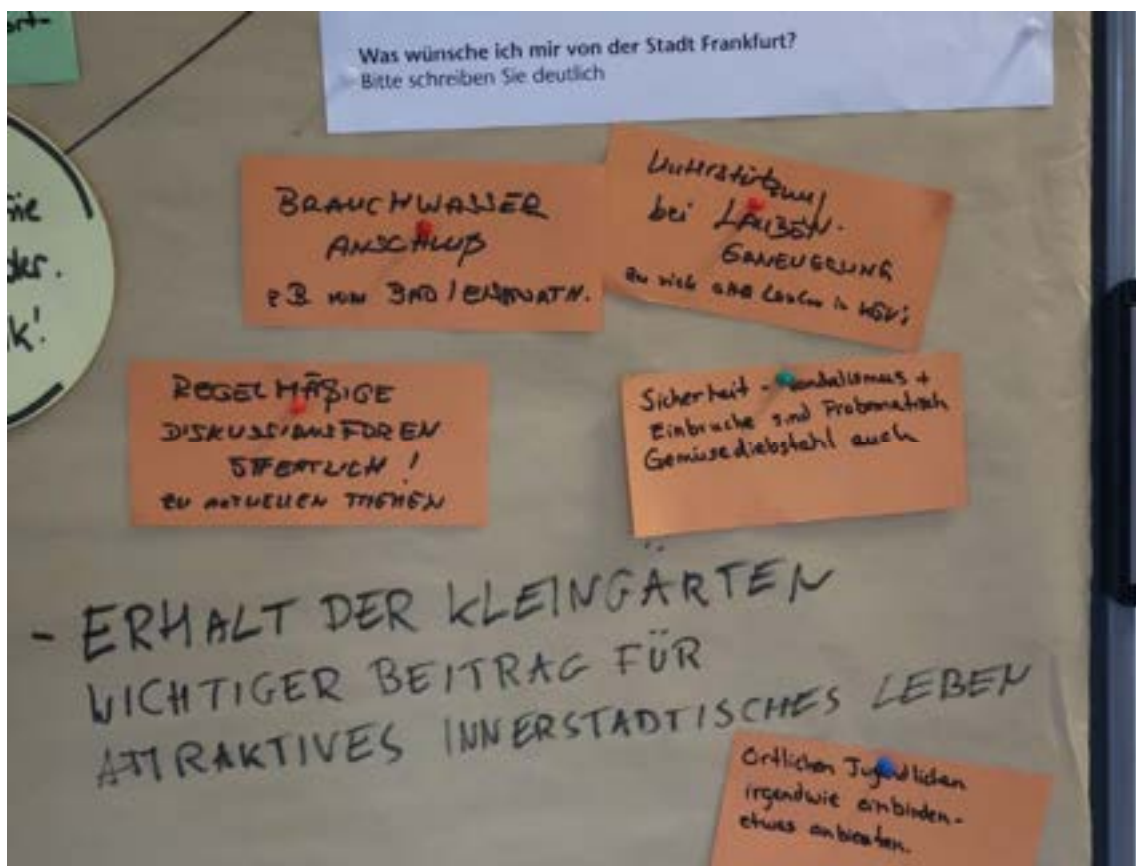 ort-
Was wünsche ich mir von der Stadt Frankfurt?
Bitte schreiben Sie deutlich
BRAUCHWASSER
ANSCHLUß
z B von
Unterstützung
bei LAUBEN.
alte Lauben in KGV's
REGELMÄßIGE
DISKUSSIONSFOREN
ÖFFENTLICH !
ZU AKTUELLEN THEMEN
Sicherheit - Vandalismus +
Einbrüche sind Probematisch
Gemüsediebstahl auch
- ERHALT DER KLEINGÄRTEN
WICHTIGER BEITRAG FÜR
ATTRAKTIVES INNERSTADTISCHES LEBEN
Örtlichen Jugendlichen
irgendwie einbinden-
etwas anbieten.
k!